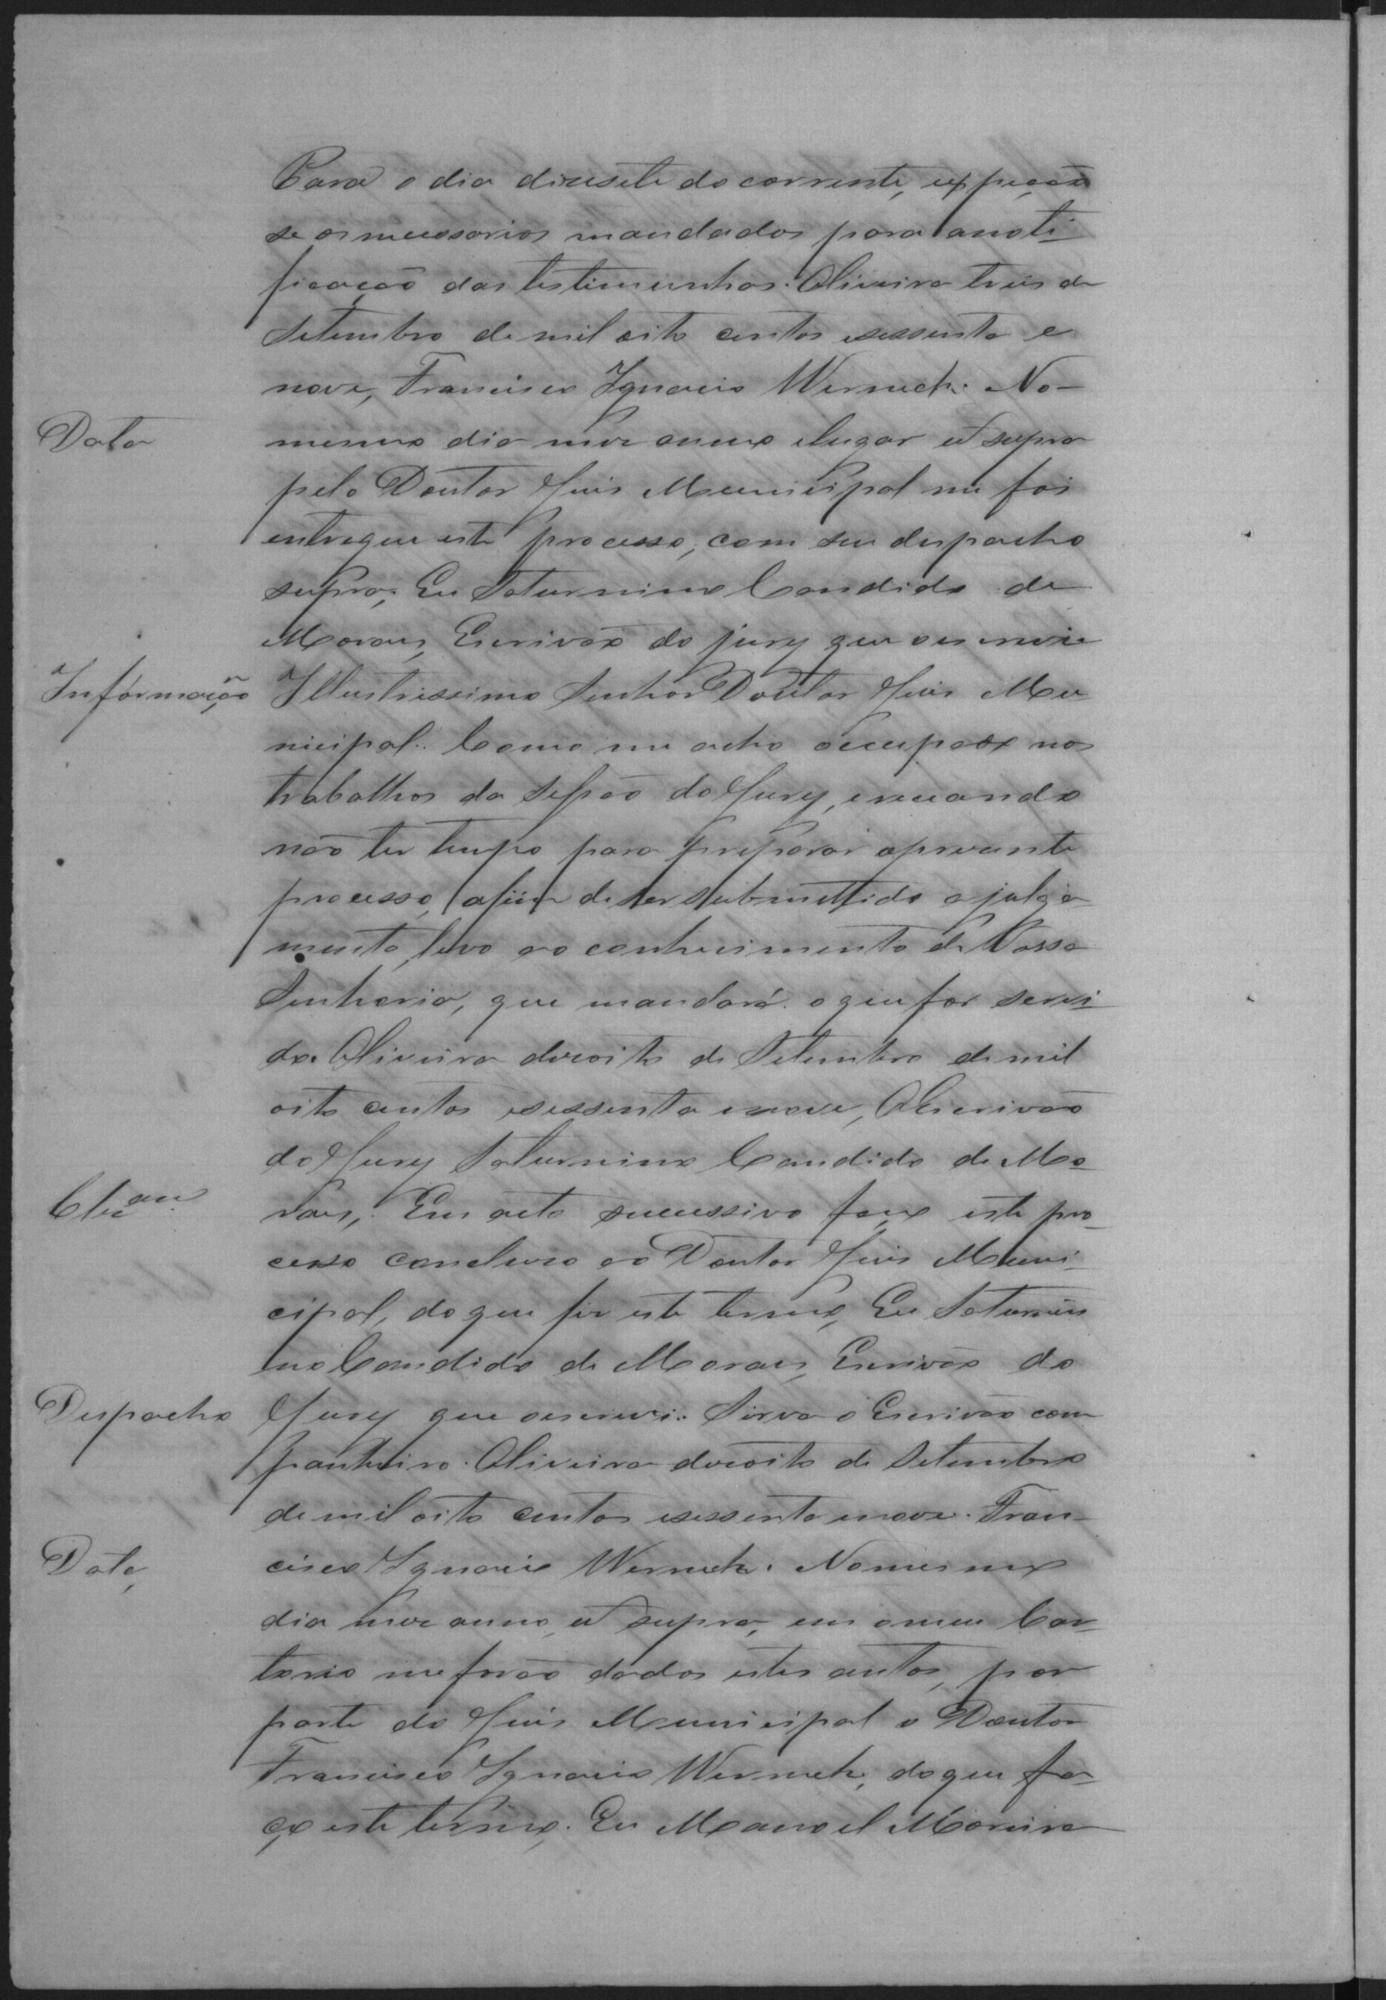 Para o dia dizesete do corrente, expeção
se os necessarios mandados para anoti
ficação das testimunhas. Oliveira tres de
Setembro de mil oito centos esessenta e
nove, Francisco Ignacio Werneck. No
Data
mesmo dia mez anno elugar ut supra
pelo Doutor Juis Municipal me foi
entregue este processo, com seu despacho
supra; Eu Saturnino Candido de
Moraes, Escrivão do jury que oescrevi
Informação
Illustrissimo Senhor Doutor Juis Mu
nicipal. Como me acho occupado nos
trabalhos da Sessão do Jury, e
não ter tempo para preparar opresente
processo, afim de ser submettido a julga
mento, levo ao conhecimento de Vossa
Senhoria, que mandará o que for servi
do. Oliveira dezoito de Setembro de mil
oito centos esessenta enove, O Escrivão
do Jury Saturnino Candido de Mo
Clzam
raes, Em acto successivo faço este pro
cesso concluso ao Doutor Juis Muni
cipal, do que fiz este termo, Eu Saturni
no Candido de Moraes, Escrivão do
Despacho
Jury que oescrevi. Sirva o Escrivão com
panheiro. Oliveira dezoito de Setembro
de mil oito centos esessenta enove. Fran
Data,
cisco Ignacio Werneck. No mesmo
dia mez anno, ut supra, em o meu Car
torio me forão dados estes autos, por
parte do Juis Municipal o Doutor
Francisco Ignacio Werneck, do que fa
ço este termo. Eu Manoel Moreira